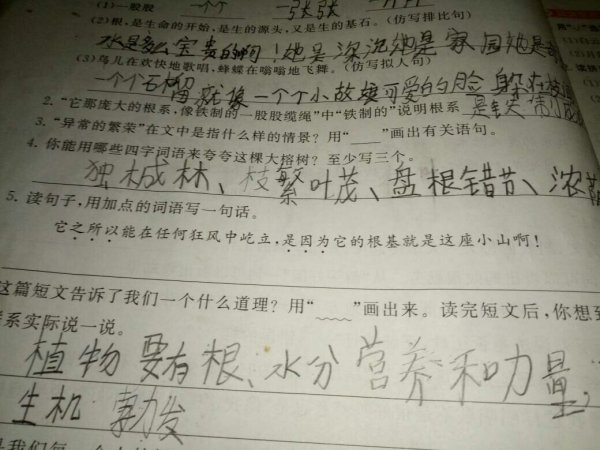 (1)一股股 一个个 一张张
(2)根,是生命的开始,是生的源头,又是生的基石。(仿写排比句)
水是多么宝贵的啊!她是深泡她是家园她是
(3)鸟儿在欢快地歌唱,蜂蝶在嗡嗡地飞舞。(仿写拟人句)
一个个石榴就像一个个小故娘可爱的的脸躲在
2. “它那庞大的根系,像铁制的一股股缆绳”中“铁制的”说明根系 是铁制成
3. “异常的繁荣”在文中是指什么样的情景?用“——”画出有关语句。
4. 你能用哪些四字词语来夸夸这棵大榕树?至少写三个。
独木成林、枝繁叶茂、盘根错节、浓
5. 读句子,用加点的词语写一句话。
它之所以能在任何狂风中屹立,是因为它的根基就是这座小山啊!
这篇短文告诉了我们一个什么道理?用“﹏﹏”画出来。读完短文后,你想到
系实际说一说。
植物要有根、水分营养和力量,
生机勃发